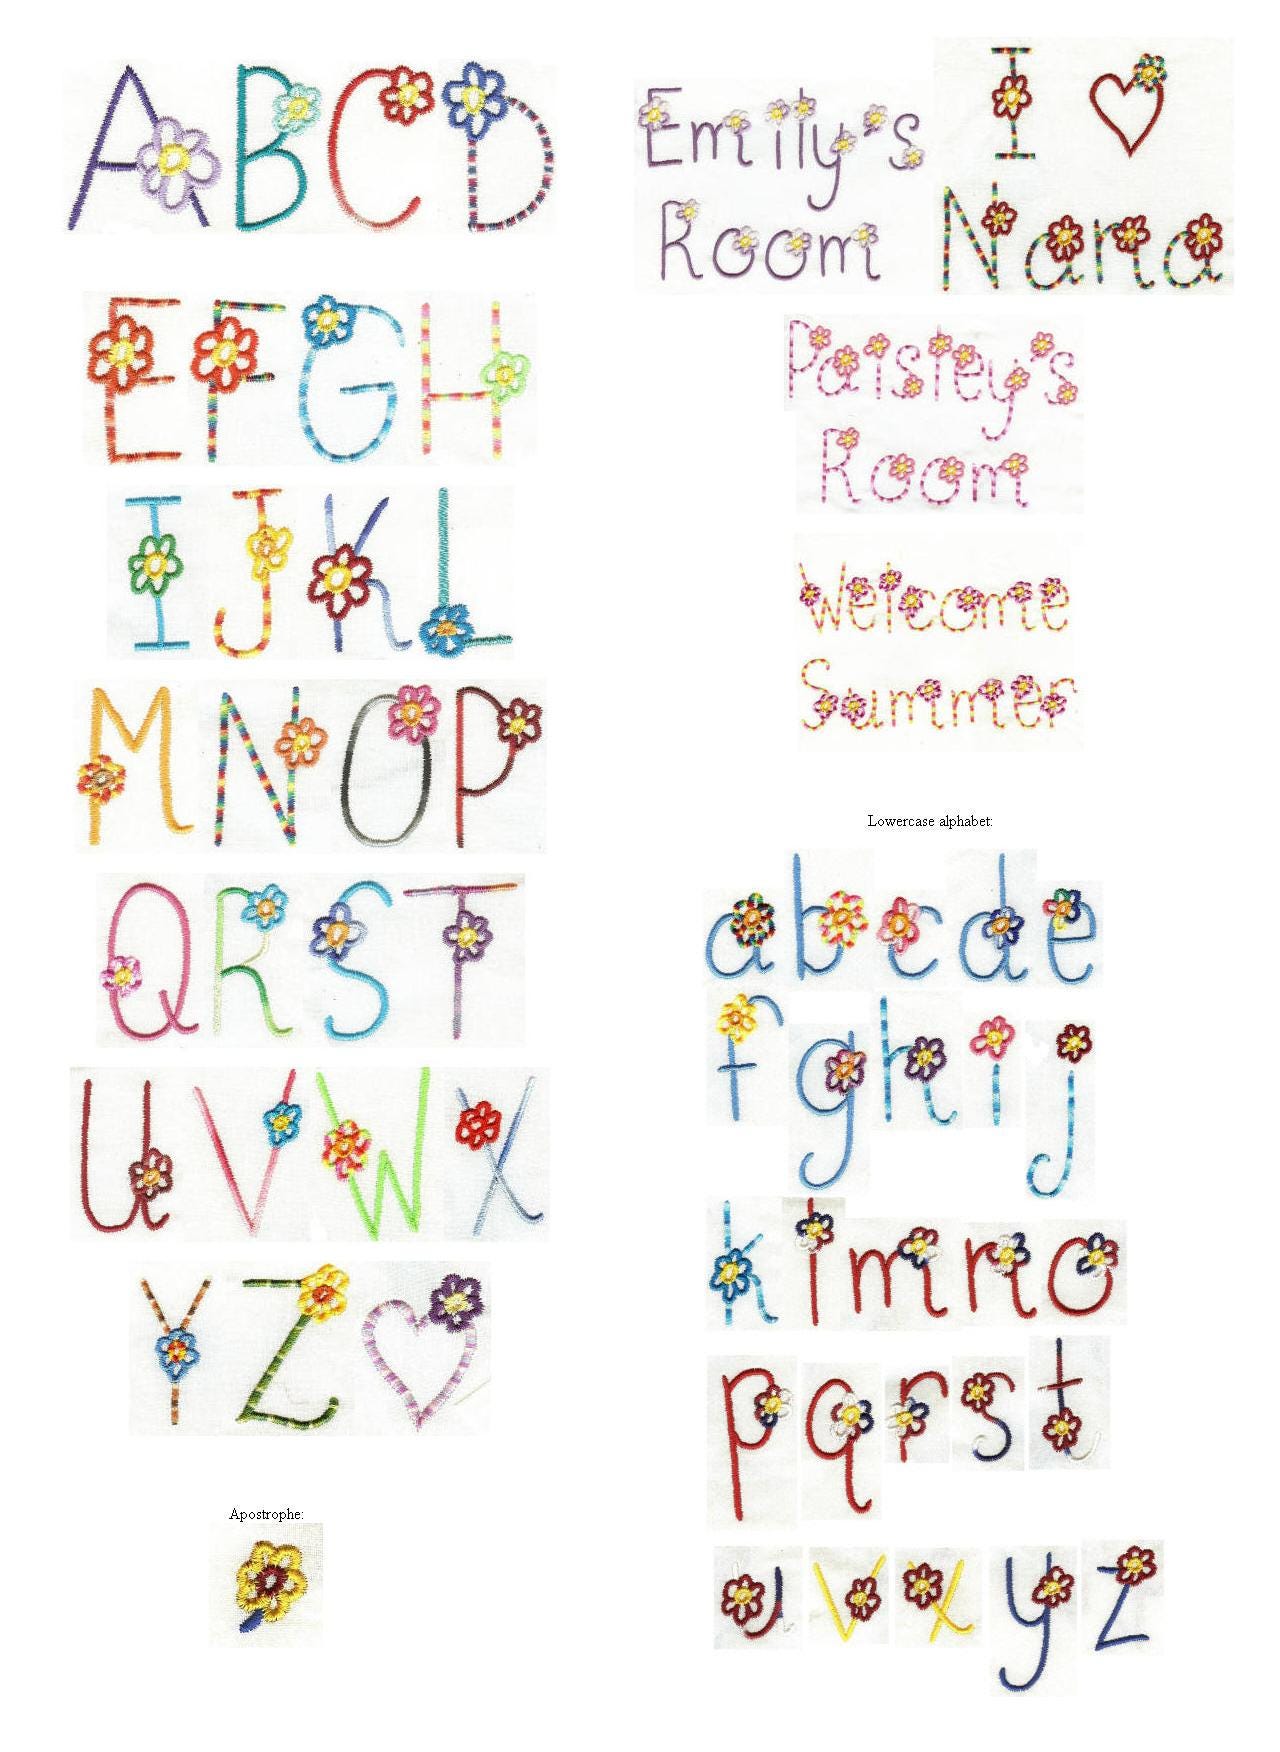 ABCD
EFGH
IJKL
MNOP
QRST
UVWX
YZ
Apostrophe:
Emily's
Room
I
Nana
Paisley's
Room
Welcome
Summer
Lowercase alphabet:
abcde
fghij
klmno
pqrst
uvxyz